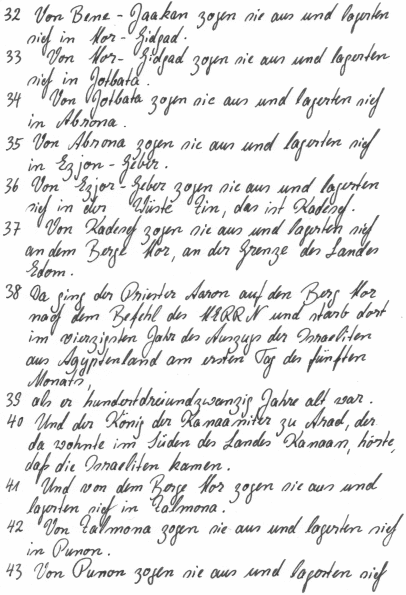 32 Von Bene-Jaakan zogen sie aus und lagerten
sich in Hor-Gidgad.
33 Von Hor-Gidgad zogen sie aus und lagerten
sich in Jotbata.
34 Von Jotbata zogen sie aus und lagerten sich
in Abrona.
35 Von Abrona zogen sie aus und lagerten sich
in Ezjon-Geber.
36 Von Ezjon-Geber zogen sie aus und lagerten
sich in der Wüste Zin, das ist Kadesch.
37 Von Kadesch zogen sie aus und lagerten sich
an dem Berge Hor, an der Grenze des Landes
Edom.
38 Da ging der Priester Aaron auf den Berg Hor
nach dem Befehl des HERRN und starb dort
im vierzigsten Jahr des Auszugs der Israeliten
aus Ägyptenland am ersten Tag des fünften
Monats,
39 als er hundertdreiundzwanzig Jahre alt war.
40 Und der König der Kanaaniter zu Arad, der
da wohnte im Süden des Landes Kanaan, hörte,
daß die Israeliten kamen.
41 Und von dem Berge Hor zogen sie aus und
lagerten sich in Zalmona.
42 Von Zalmona zogen sie aus und lagerten sich
in Punon.
43 Von Punon zogen sie aus und lagerten sich